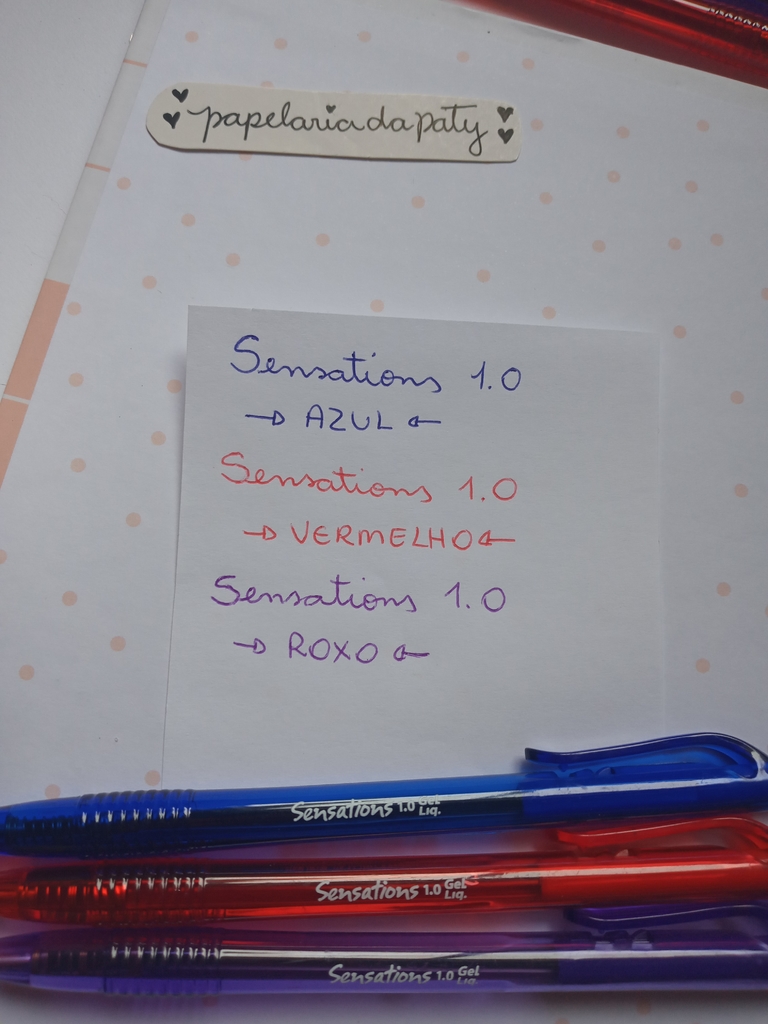 papelaria da paty
Sensations 1.0
AZUL
Sensations 1.0
VERMELHO
Sensations 1.0
ROXO
Sensations 1.0 Gel Liq.
Sensations 1.0 Gel Liq.
Sensations 1.0 Gel Liq.